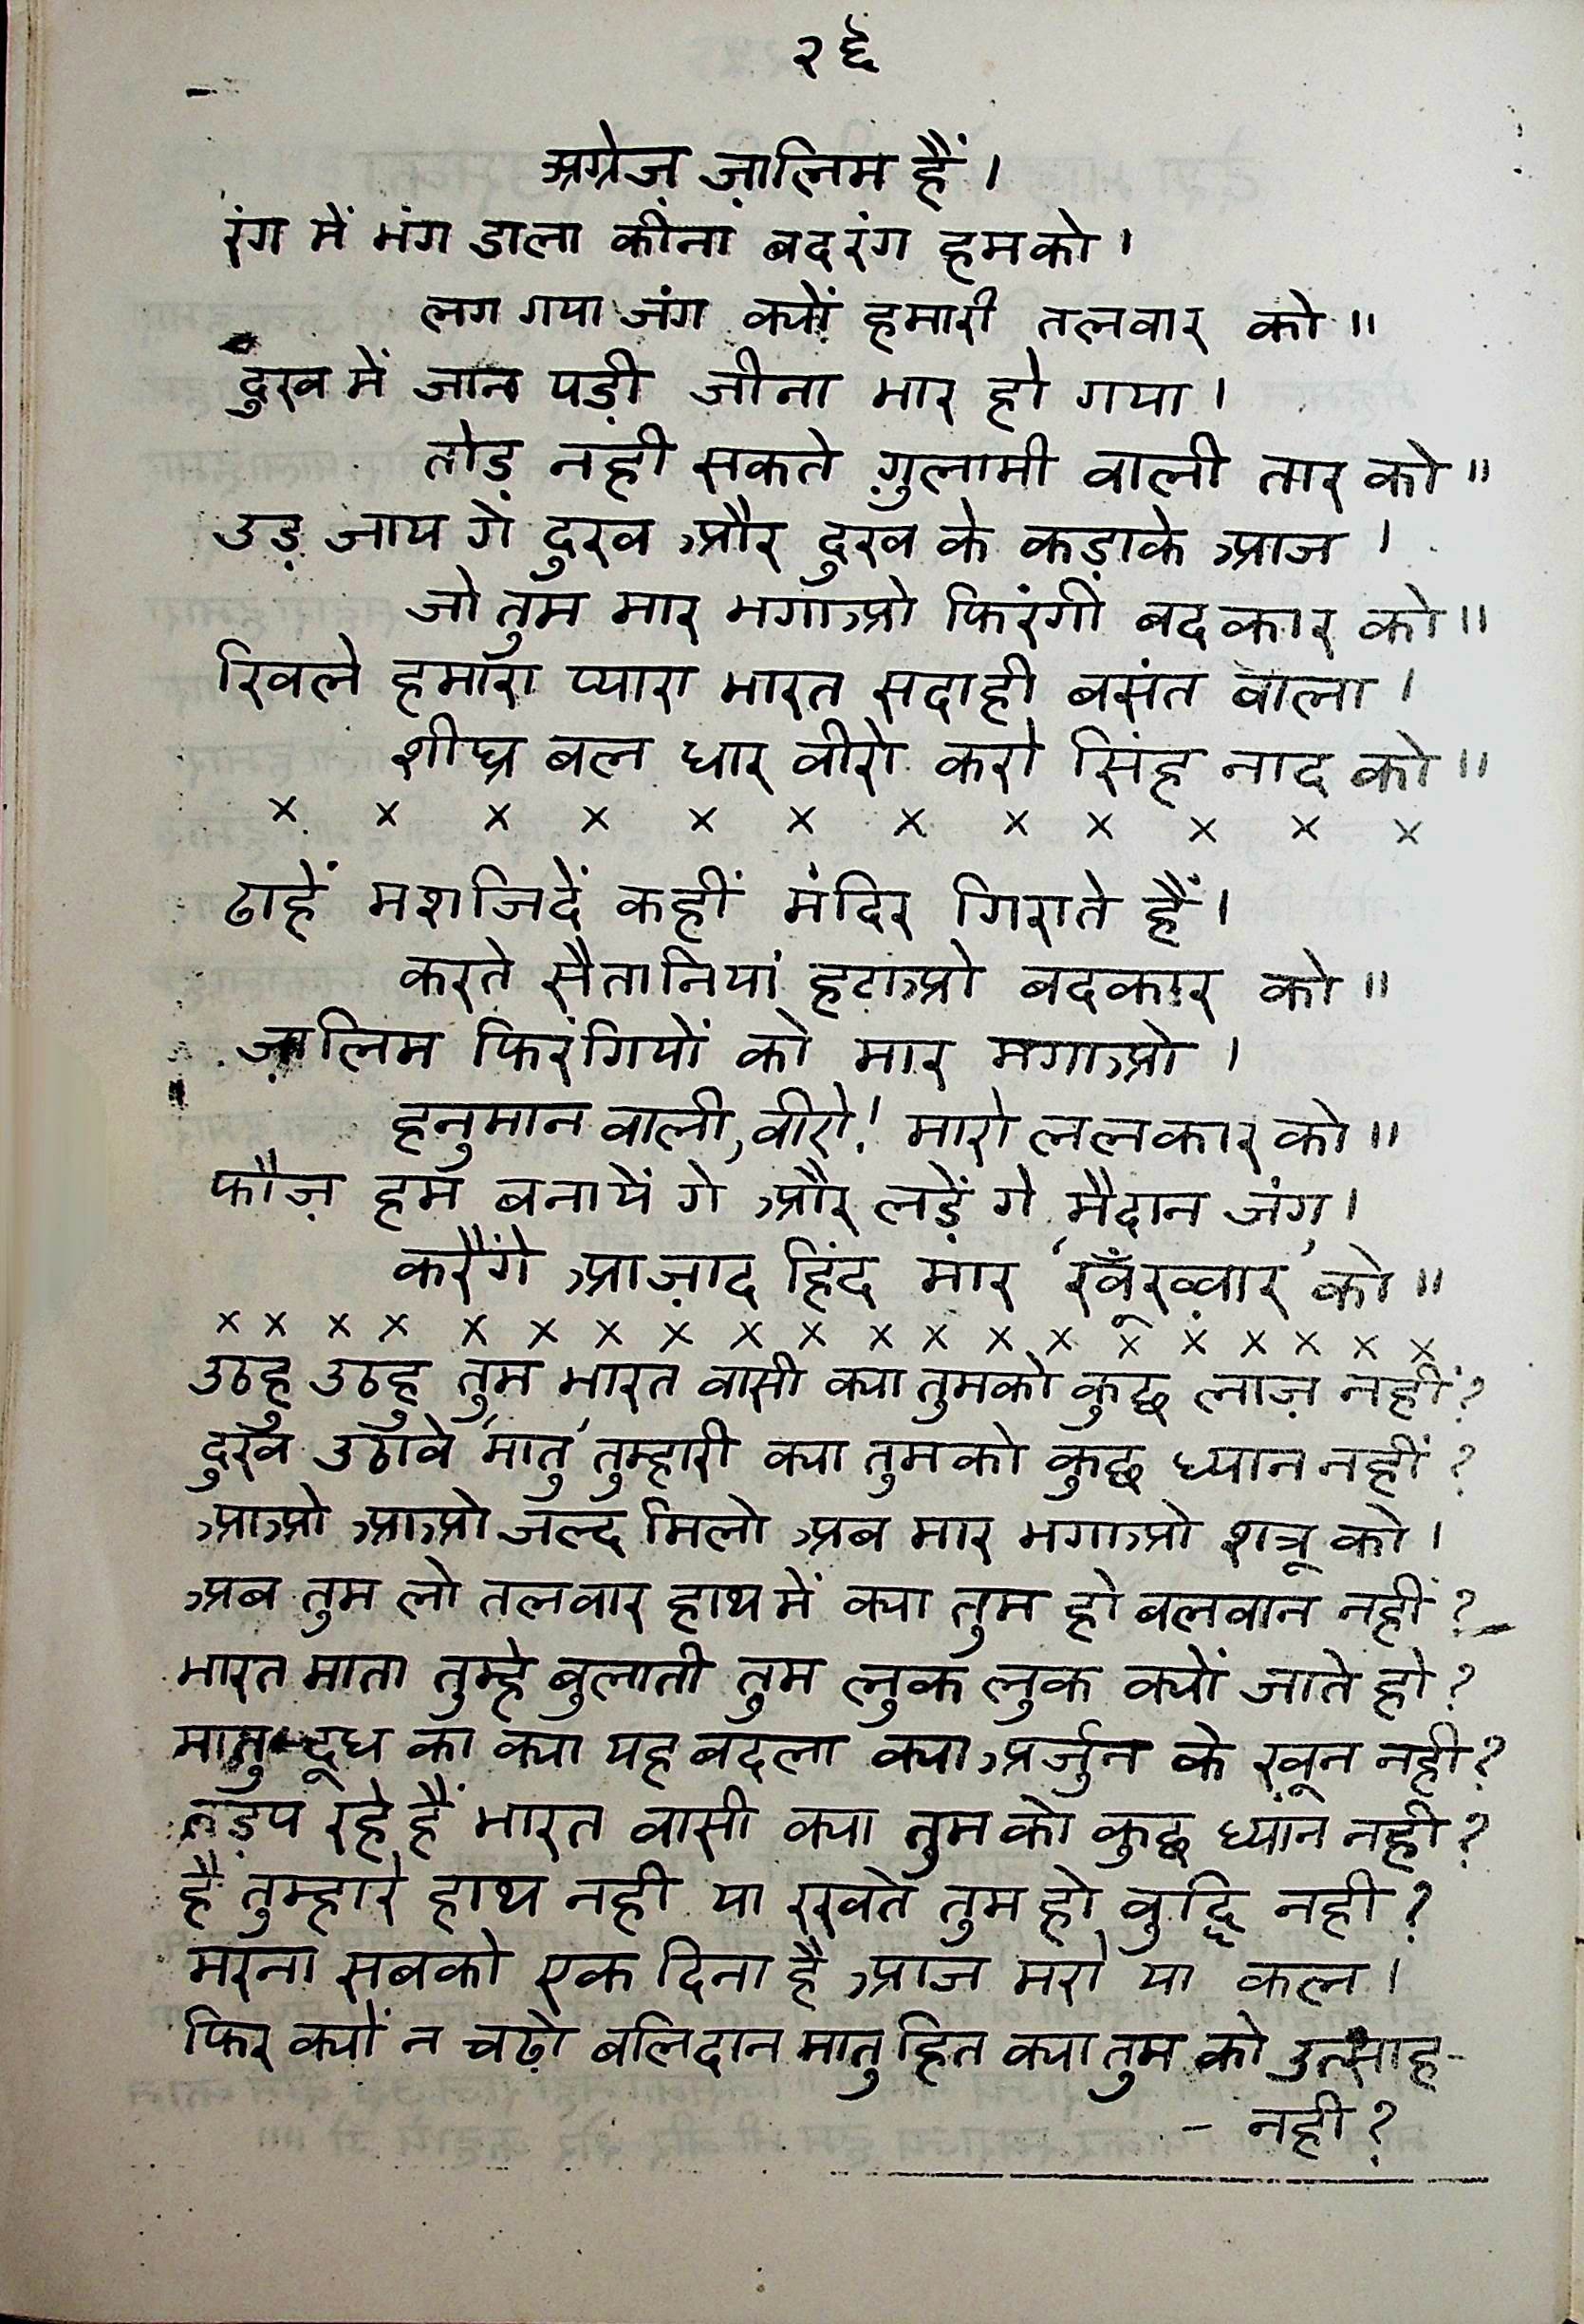 २६
अग्रेज़ ज़ालिम हैं।
रंग में भंग डाला कीनां बदरंग हमको।
लग गया जंग क्यों हमारी तलवार को॥
दुख में जान पड़ी जीना भार हो गया।
तोड़ नहीं सकते ग़ुलामी वाली तार को॥
उड़ जाय गें दुख और दुख के कड़ाके आज।
जो तुम मार भगाओ फिरंगी बदकार को॥
खिले हमारा प्यारा भारत सदाही बसंत वाला।
शीघ्र बल धार वीरो करो सिंह नाद को॥
× × × × × × × × × × × ×
ढाहें मशजिदें कहीं मंदिर गिराते हैं।
करते सैतानियां हटाओ बदकार को॥
ज़ालिम फिरंगियों को मार भगाओ।
हनुमान वाली, वीरो! मारो ललकार को॥
फौज़ हम बनायें गे और लड़ें गे मैदान जंग,।
करैंगे आज़ाद हिंद मार 'खूँख़्वार' को॥
× × × × × × × × × × × × × × × × × × × ×
उठहु उठहु तुम भारत वासी क्या तुमको कुछ लाज़ नहीं?
दुख उठावे 'मातु' तुम्हारी क्या तुमको कुछ ध्यान नहीं?
आओ आओ जल्द मिलो अब मार भगाओ शत्रू को।
अब तुम लो तलवार हाथ में क्या तुम हो बलवान नहीं?
भारत माता तुम्हे बुलाती तुम लुक लुक क्यों जाते हो?
मातु-दूध का क्या यह बदला क्या अर्जुन के ख़ून नही?
तड़प रहे हैं भारत वासी क्या तुम को कुछ ध्यान नही?
है तुम्हारे हाथ नही या रखते तुम हो बुद्धि नही?
मरना सबको एक दिना है आज मरो या कल।
फिर क्यों न चढ़ो बलिदान मातु हित क्या तुम को उत्साह-
- नही?